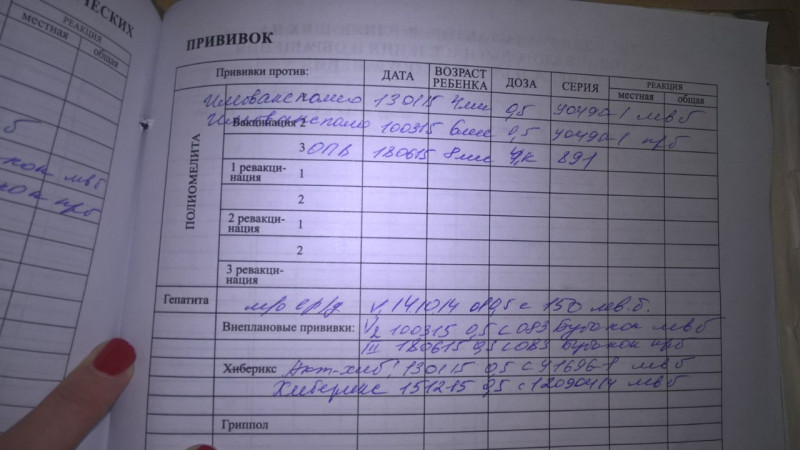 ЧЕСКИХ
РЕАКЦИЯ
местная общая
б
мвб
прб
ПРИВИВОК
Прививки против: ДАТА ВОЗРАСТ РЕБЕНКА ДОЗА СЕРИЯ РЕАКЦИЯ
местная общая
ПОЛИОМЕЛИТА
Имовакс полио 130115 4мес 0,5 J0490-1 мвб
Вакцинация 2 Имовакс полио 100315 6мес 0,5 J0490-1 прб
3 ОПВ 180615 8мес 4к 891
1 ревакци-
нация 1
2
2 ревакци-
нация 1
2
3 ревакци-
нация
Гепатита м/о ср/д V1 141014 0,5 с 150 лв.б.
Внеплановые прививки: V2 100315 0,5 с 083 Бубо кок мвб
III 180615 0,5 с 083 бубокок прб
Хиберикс Акт-хиб 130115 0,5 с J1696-1 мвб
Хиберикс 151215 0,5 мвб
Гриппол